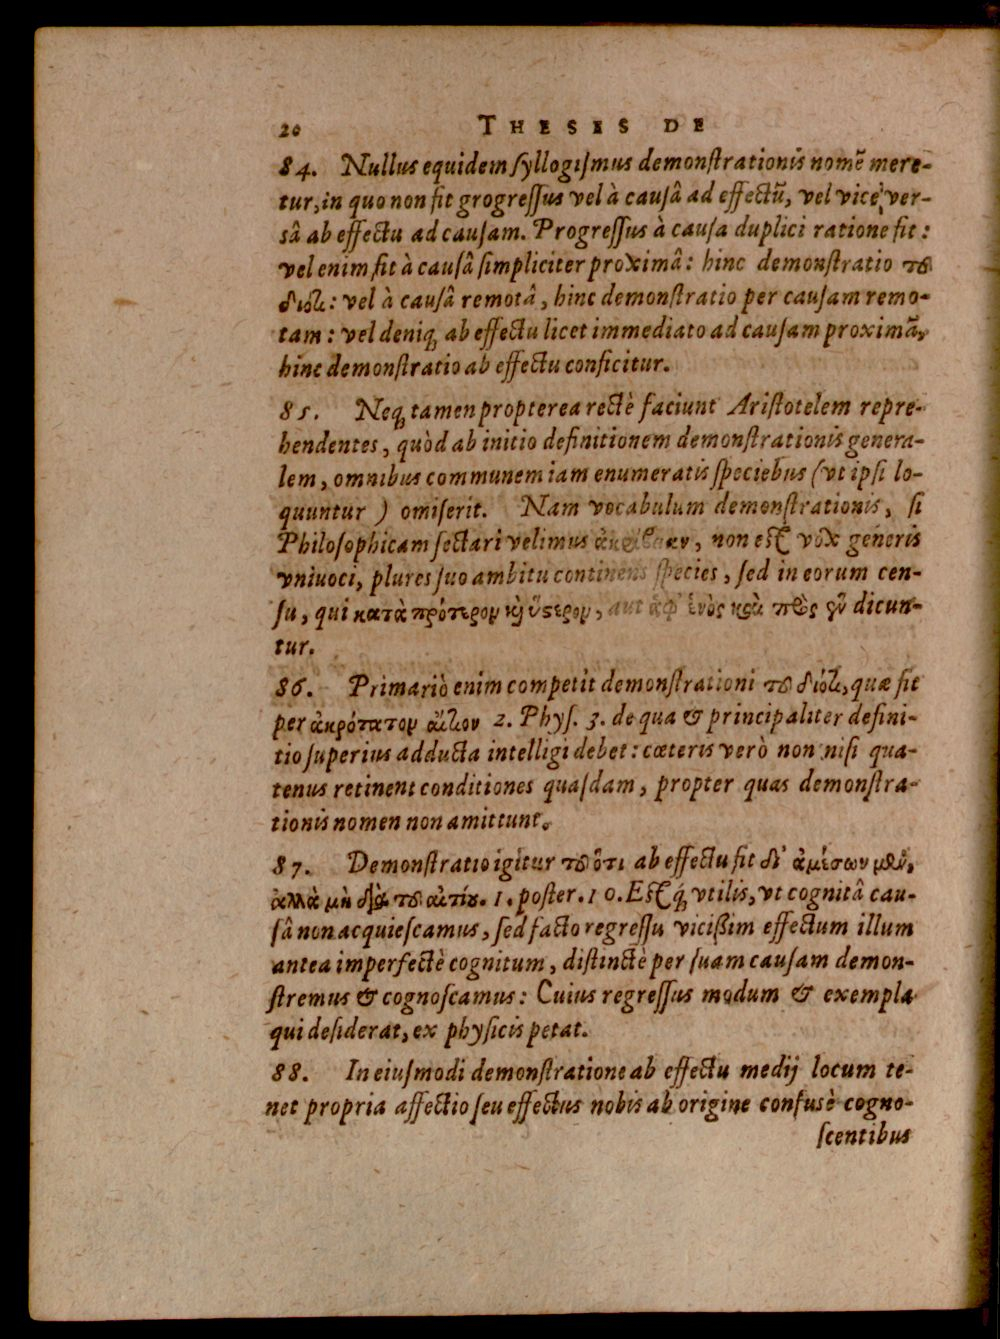 20 THESES DE
84. Nullus equidem ſyllogiſmus demonſtrationis nomẽ mere-
tur, in quo non fit grogreſſus vel à cauſâ ad effectũ, vel vice ver-
sâ ab effectu ad cauſam. Progreſſus à cauſa duplici ratione fit:
vel enim fit à cauſâ ſimpliciter proximâ: hinc demonſtratio τοῦ
διότι: vel à cauſâ remotâ, hinc demonſtratio per cauſam remo-
tam: vel deniq; ab effectu licet immediato ad cauſam proximã,
hinc demonſtratio ab effectu conficitur.
85. Neq; tamen propterea rectè faciunt Ariſtotelem repre-
hendentes, quòd ab initio definitionem demonſtrationis genera-
lem, omnibus communem iam enumeratis ſpeciebus (vt ipſi lo-
quuntur) omiſerit. Nam vocabulum demonſtrationis, ſi
Philoſophicam ſectari velimus ἀκρίβειαν, non eſt vox generis
vniuoci, plures ſuo ambitu continens ſpecies, ſed in eorum cen-
ſu, qui κατὰ πρότερον καὶ ὕστερον, aut ἀφ' ἑνὸς καὶ πρὸς ἓν dicun-
tur.
86. Primariò enim competit demonſtrationi τοῦ διότι, quæ fit
per ἀκρότατον αἴτιον 2. Phyſ. 3. de qua & principaliter defini-
tio ſuperius adducta intelligi debet: cœteris verò non niſi qua-
tenus retinent conditiones quaſdam, propter quas demonſtra-
tionis nomen non amittunt.
87. Demonſtratio igitur τοῦ ὅτι ab effectu fit δι' ἀμέσων μὲν,
ἀλλὰ μὴ διὰ τοῦ αἰτίου. 1. poſter. 10. Eſtq; vtilis, vt cognitâ cau-
ſâ non acquieſcamus, ſed facto regreſſu viciſſim effectum illum
antea imperfectè cognitum, diſtinctè per ſuam cauſam demon-
ſtremus & cognoſcamus: Cuius regreſſus modum & exempla
qui deſiderat, ex phyſicis petat.
88. In eiuſmodi demonſtratione ab effectu medij locum te-
net propria affectio ſeu effectus nobis ab origine confusè cogno-
ſcentibus